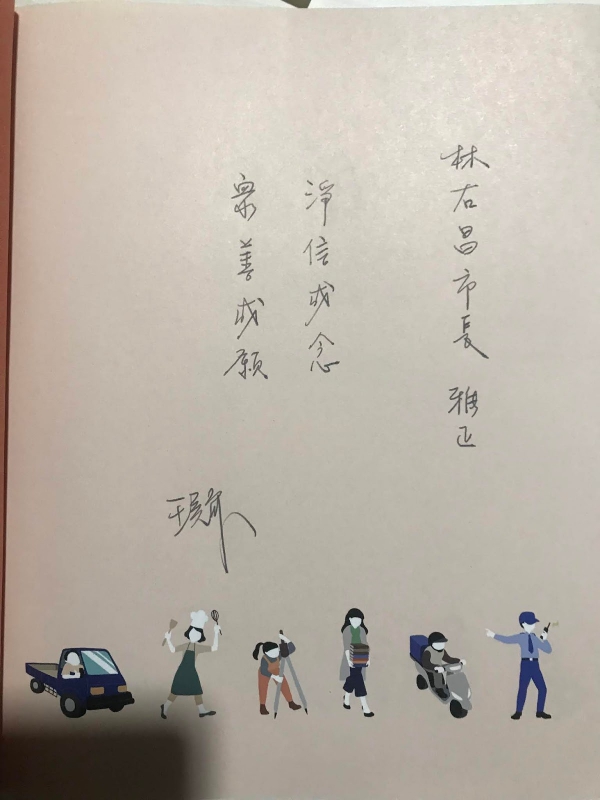 林右昌市長 雅正
淨信成念
衆善成願